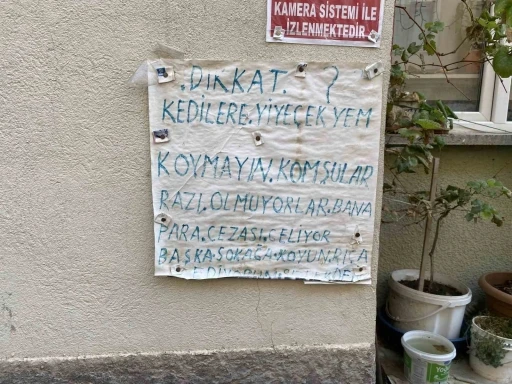 KAMERA SİSTEMİ İLE
İZLENMEKTEDİR
.DİKKAT. ?
KEDİLERE.YİYEÇEK YEM
KOYMAYIN.KOMŞULAR
RAZI.OLMUYORLAR.BANA
PARA.CEZASI.GELİYOR
BAŞKA.SOKAĞA.KOYUN.RİCA